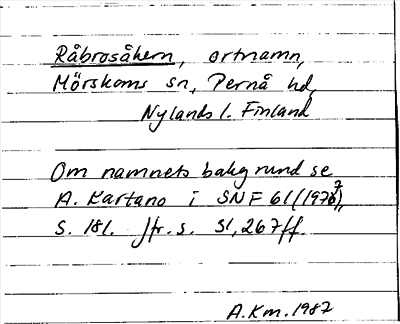 Råbrosåkern, ortnamn,
Mörskoms sn, Pernå hd,
Nylands l. Finland
Om namnets bakgrund se
A. Kartano i SNF 61 (1977),
s. 181. Jfr. s. 51, 267 ff.
A.Km. 1987